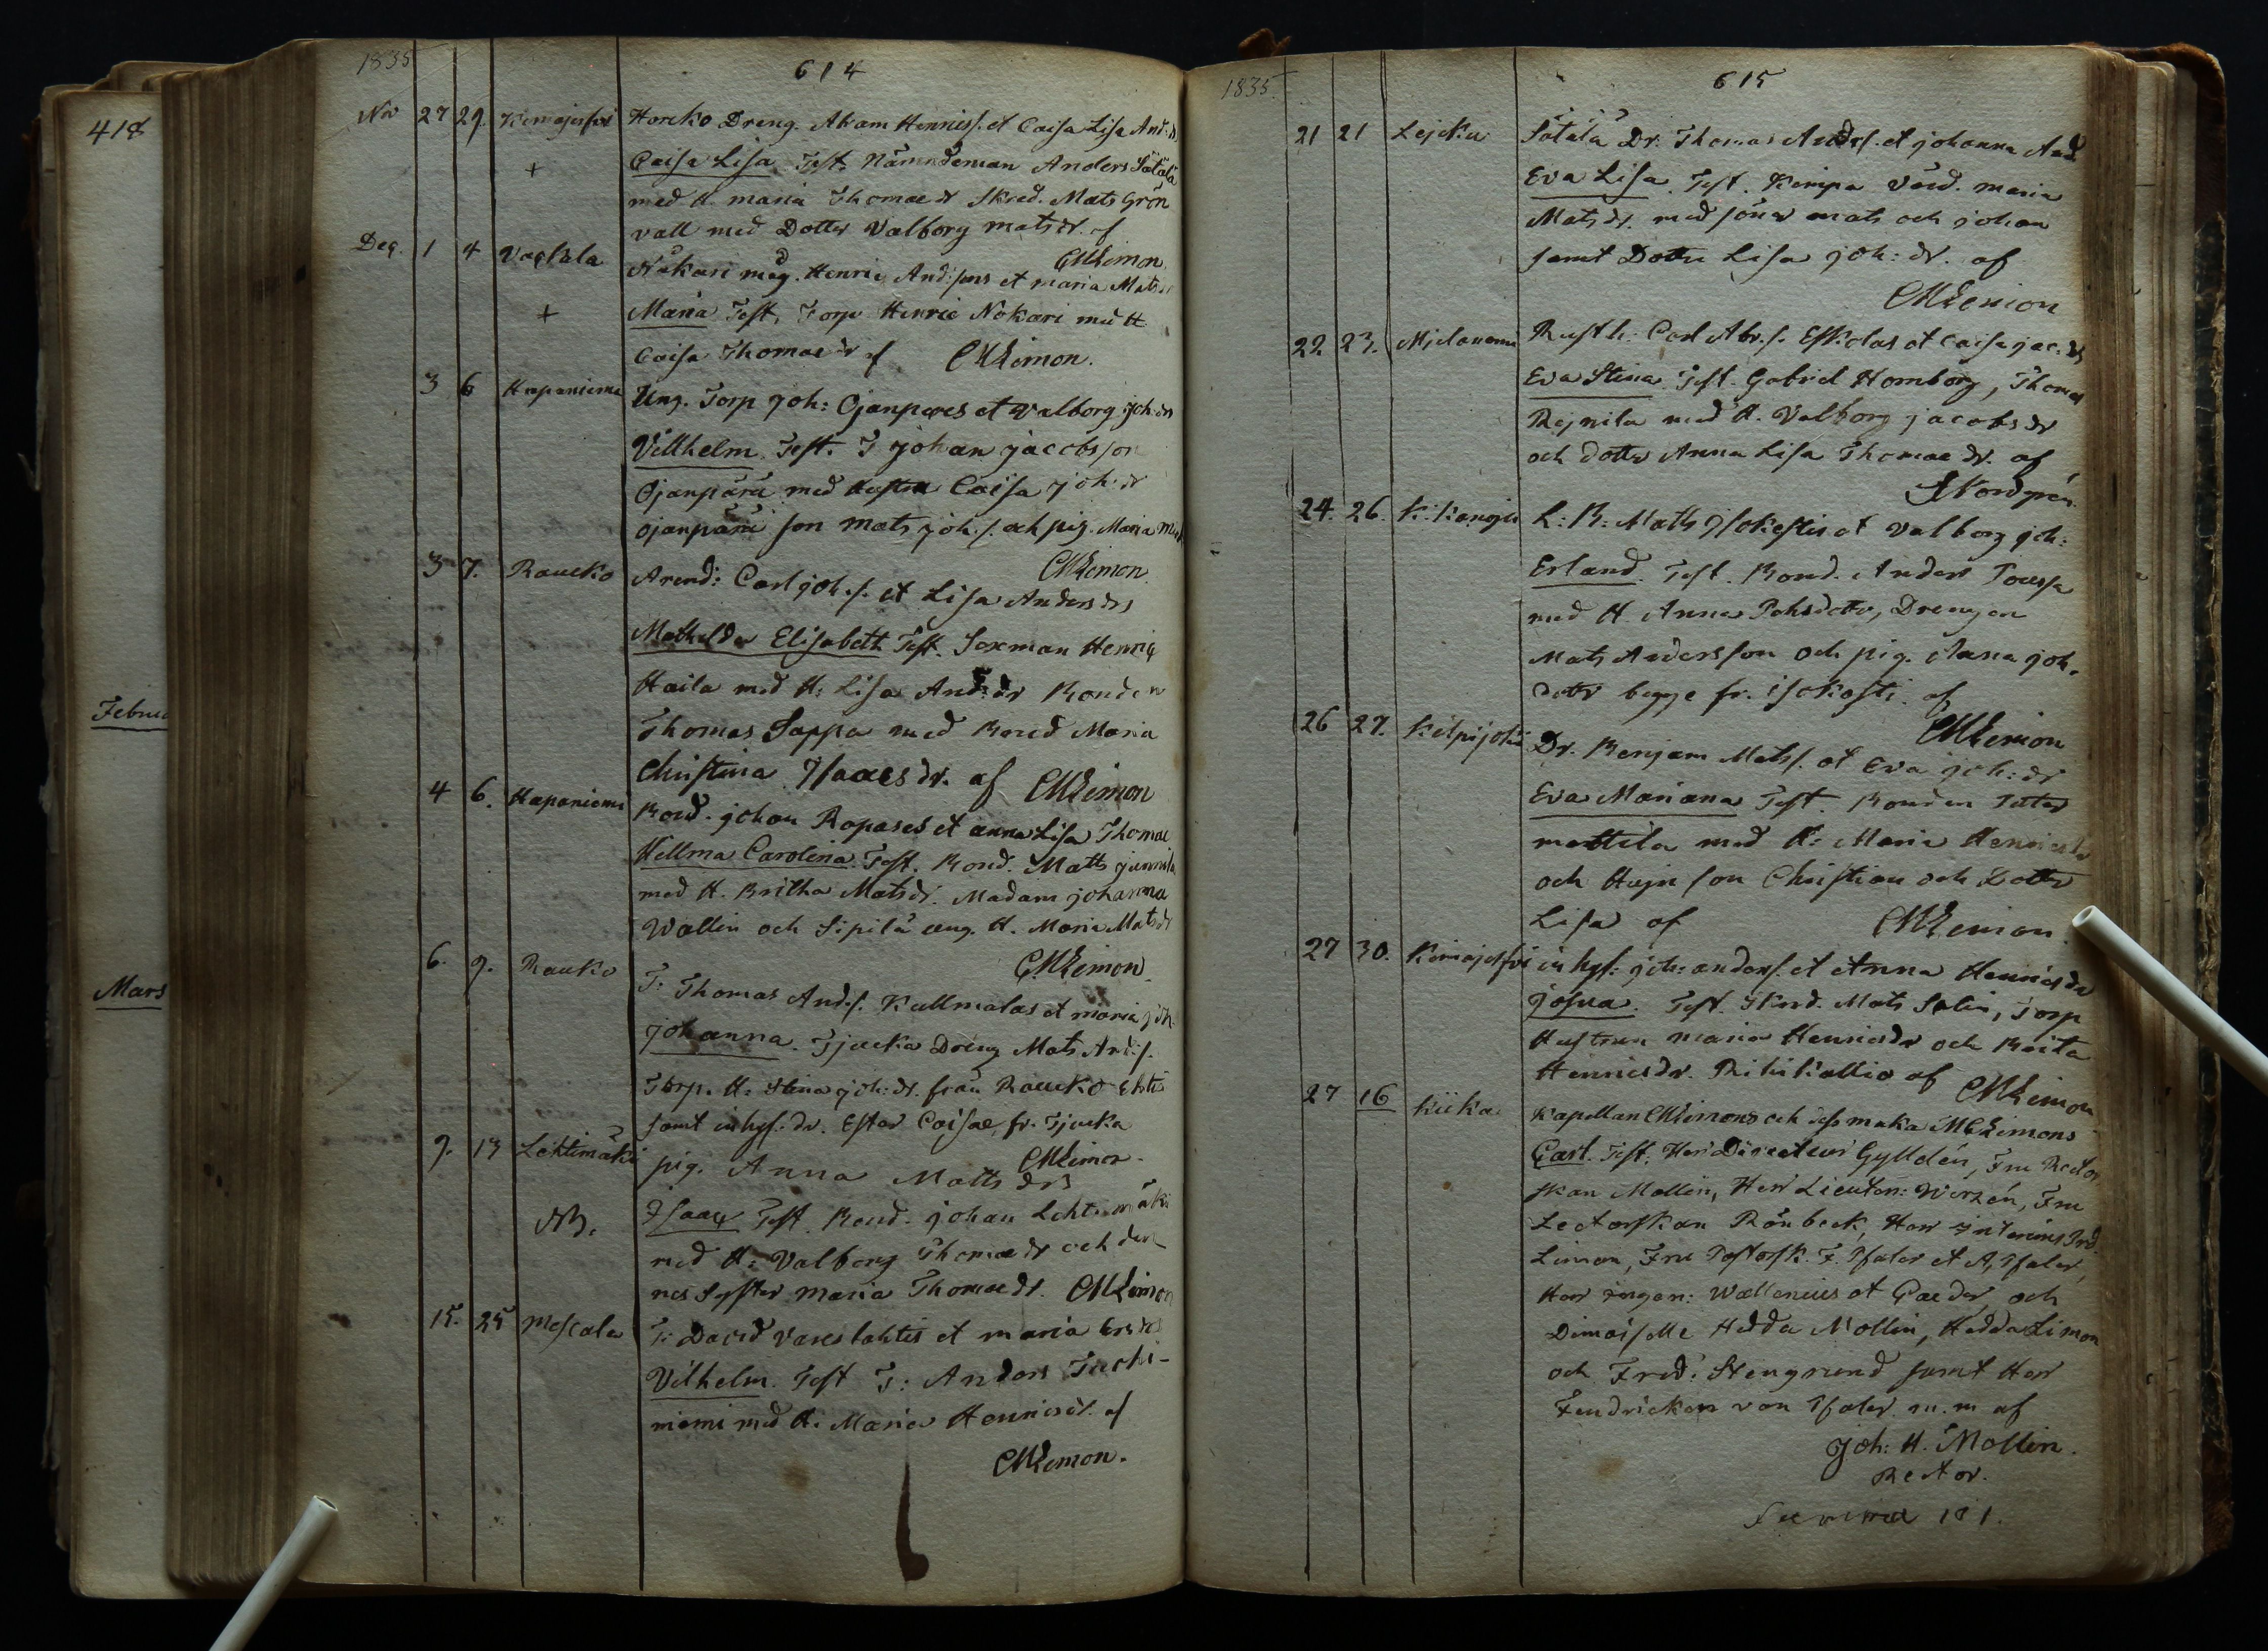 418
Februa
Mars
1835
614
Nov 27 29. Kimajerfvi Horcko Dreng. Abam Henricss. et Caisa Lisa And: dr
+ Caisa Lisa Test. Nämndeman Anders Sätälä
med H. maria Thomae dr Skred. Mats Grön
vall med Dotter Valborg matsdr. af
CMLimon.
Dec. 1 4 Vaglula Nåkari måg. Henric And:sons et maria Matsdr
+ Maria Test. Torp Henric Nokari med H
Caisa Thomae dr af CMLimon.
3 6 Hapaniemi Ung. Torp Joh: Ojanperes et Valborg Joh:dr
Villhelm. Test. T Johan Jacobsson
Ojanpärä med hustru Caisa Joh: dr
Ojanpärä son Mats Joh. s. och pig. Maria
CMLimon.
3 7. Raucko Arend: Carl Joh. s. et Lisa Anders drs
Mathilda Elisabeth Test. Sexman Henriq
Haila med H: Lisa And: dr Bonden
Thomas Sappa med Bond Maria
Christina Isaacs dr. af CMLimon
4 6. Hapaniemi Bond. Johan Rapases et anna Lisa Thomae
Hellma Carolina. Test. Bond. Matts Junnila
med H. Britha Matsdr. Madam Johanna
Wallin och Sipilä ung. H. Maria Matsdr
CMLimon.
6. 9. Rauko T: Thomas And. s. Kullmalas et maria Joh.
Johanna. Tjucka Dreng Mats And: s.
Torp. H: Stina Joh: dr. från Raucko
samt inhys. dr. Ester Caisae, fr. Tjucka
CMLimon.
9. 13 Lehtimäki pig. Anna Matts drs
NB. Isaaq Test. Bond. Johan Lehtimäki
med H: Valborg Thomae dr och den
nes Syster maria Thomae dr. CMLimon
15. 25 Mescala T: David Vareslahtis et maria
Vilhelm. Test T: Anders Tuchi-
niemi med H. Maria Henricsdr. af
CMLimon.
1835.
615
21 21 Lejcku Sätälä Dr. Thomas Anders. et Johanna And
Eva Lisa. Test. Kempa Värd. maria
Mats dr. med söner mats och Johan
samt Dotter Lisa Joh: dr. af
CMLimon
22 23. Mjelaneni Rusth. Carl Abr. s. Eskolas et Caisa Jac. drs
Eva Stina Test. Gabriel Homborg, Thomas
Rejnila med H. Valborg Jacobs dr
och dotter Anna Lisa Thomae dr. af
SNordgrén.
24. 26. Kikangu L: B: Matts Isokestis et Valborg Joh:
Erland. Test. Bond. Anders Toussa
med H. Anna Pehrsdotter, Drengen
Mats Andersson och pig. Anna Joh.
dotter begge fr. isokesti. af
CMLimon
26 27. Kilpijoki Dr. Benjam Mats s. et Eva Joh: dr
Eva Mariana Test. Bonden Petter
mattila med H: Maria Henricsdr
och Hägn son Christian och Dotter
Lisa af CMLimon.
27 30. Kimajerfvi inhys: Joh: anders s. et Anna Henricsdr
Josua. Test. Skred. Mats Salin, Torp
Hustrun maria Henricsdr och Beita
Henricsdr. Rihikallio af CMLimon
27 16 Kiika Kapellan CMLimons och dess maka MCLimons
Carl. Test. Herr Directeur Gylldén, Fru Rector
skan Mollin, Herr Lieuten: Wirzén, Fru
Lectorskan Rönbeck, Herr interims Pred
Limon, Fru Pastorsk. F. Pfaler et A, Pfaler,
Herr ingen: Wallenius et Gaeder, och
Dimoiselle Hedda Mollin, Hedda Limon
och Fred: Stengrund samt Herr
Fendricken von Pfaler m.m af
Joh: H. Mollin.
Rector.
Summa 181.